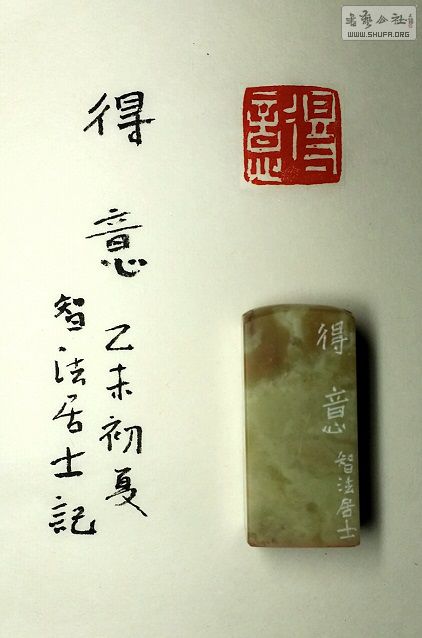 書藝公社
WWW.SHUFA.ORG
得意
得意
乙未初夏
智法居士記
得意
智法居士